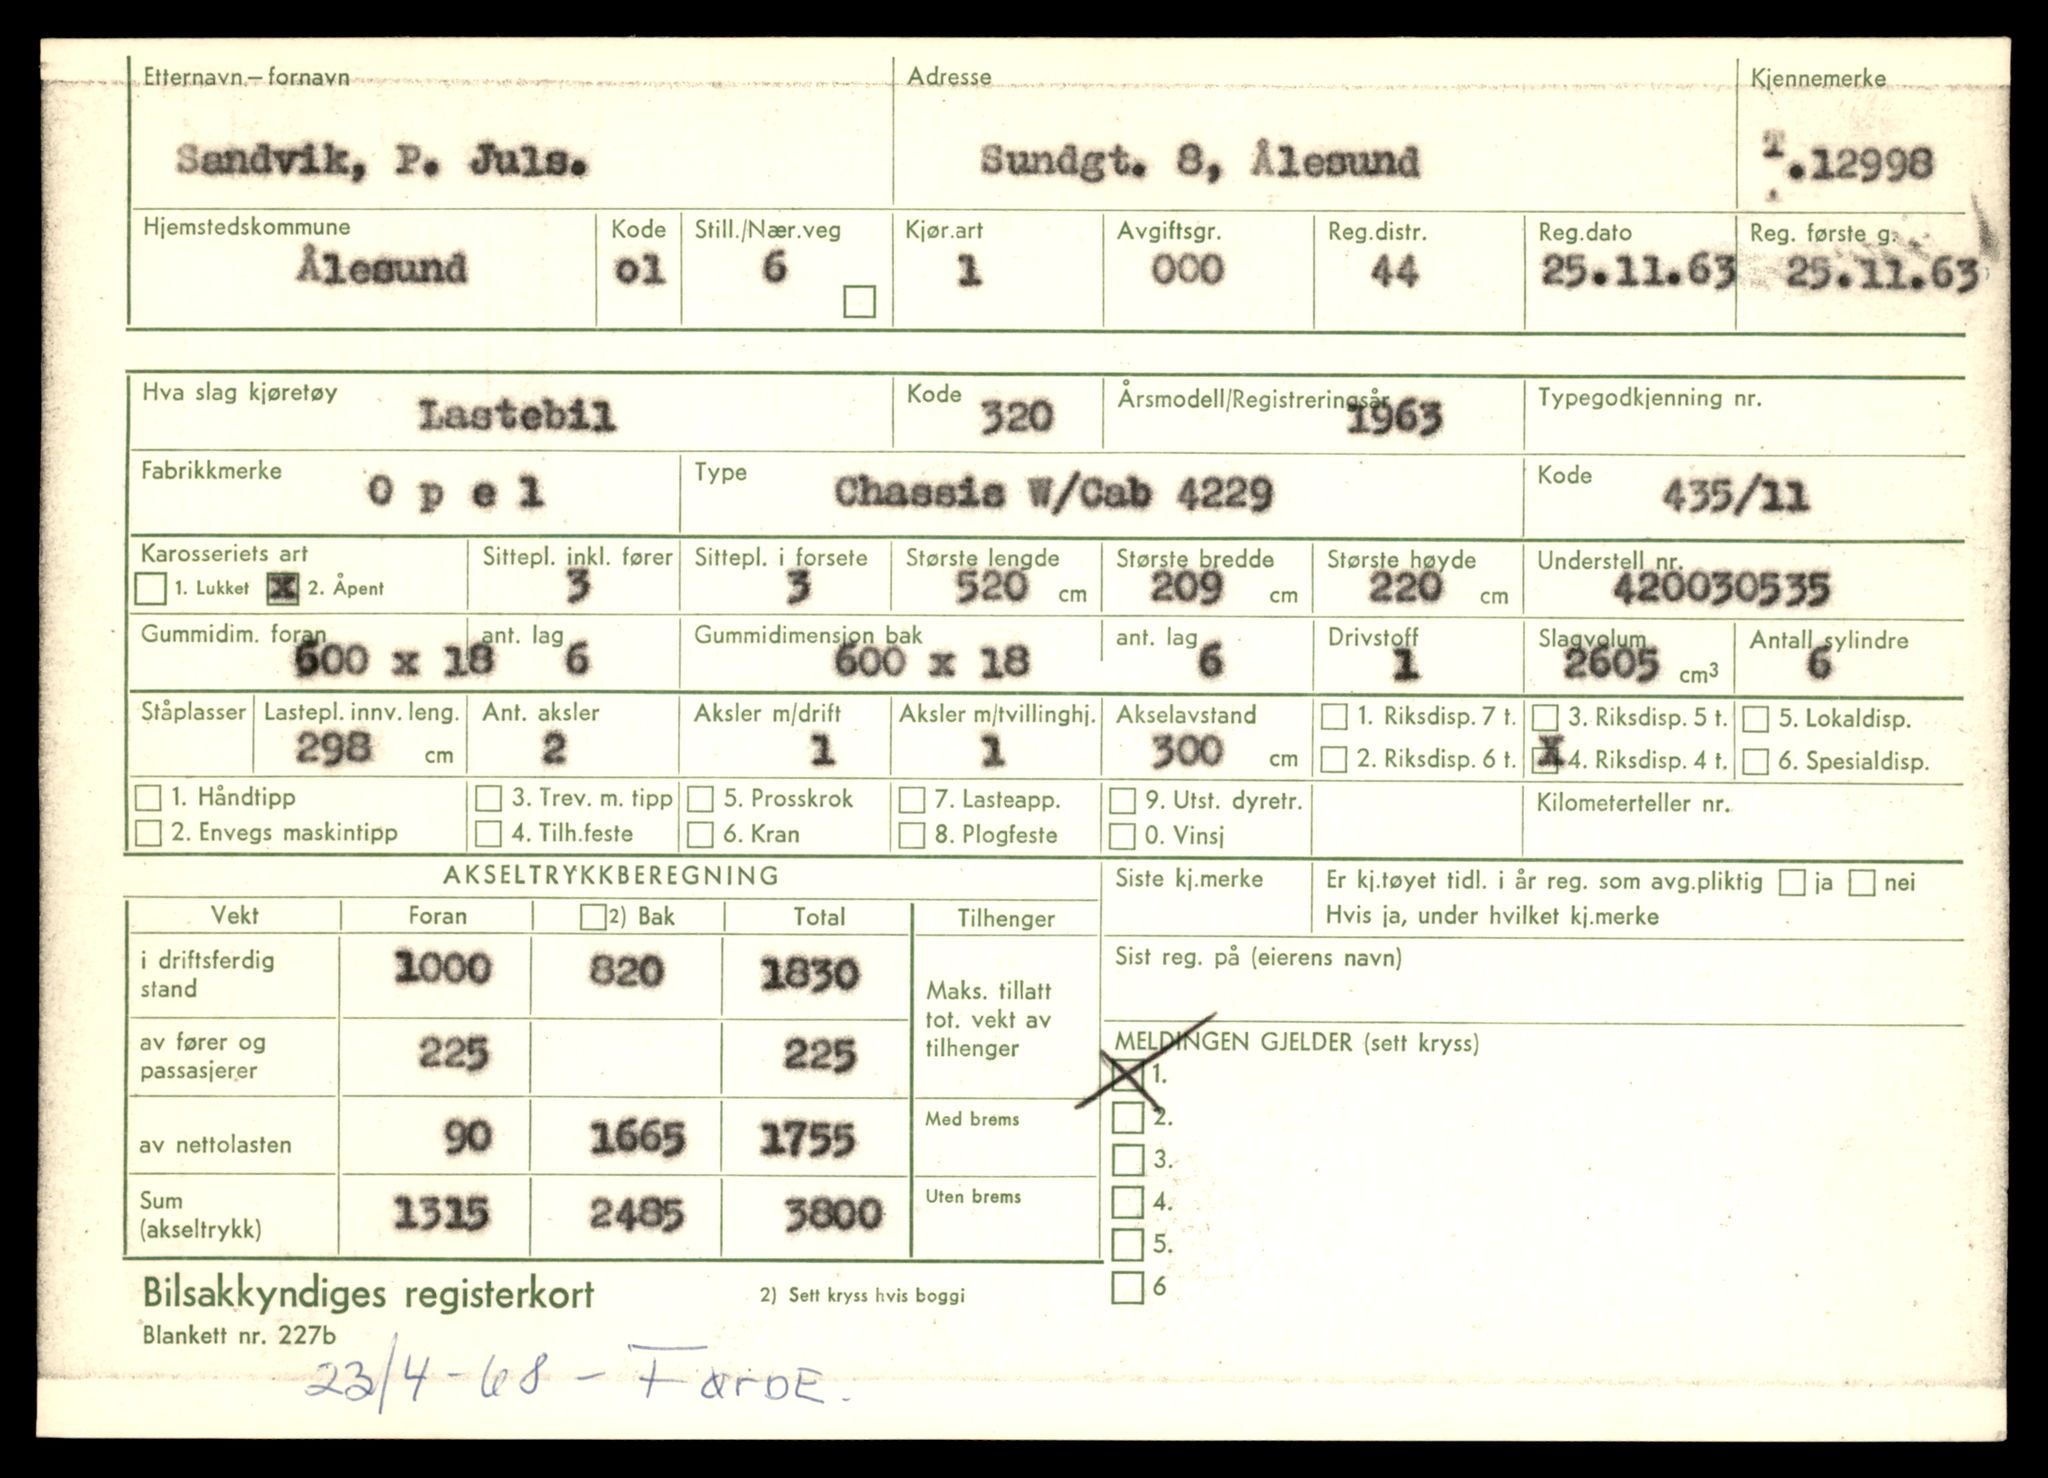 Etternavn.– fornavn Adresse Kjennemerke
Sandvik, P. Juls. Sundgt. 8, Ålesund T.12998
Hjemstedskommune Kode Still./Nær.veg Kjør.art Avgiftsgr. Reg.distr. Reg.dato Reg. første g.
Ålesund o1 6 1 000 44 25.11.63 25.11.63
Hva slag kjøretøy Kode Årsmodell/Registreringsår Typegodkjenning nr.
Lastebil 320 1963
Fabrikkmerke Type Kode
O p e l Chassis W/Cab 4229 435/11
Karosseriets art Sittepl. inkl. fører Sittepl. i forsete Største lengde Største bredde Største høyde Understell nr.
1. Lukket x 2. Åpent 3 3 520 cm 209 cm 220 cm 420030535
Gummidim. foran ant. lag Gummidimensjon bak ant. lag Drivstoff Slagvolum Antall sylindre
600 x 18 6 600 x 18 6 1 2605 cm³ 6
Ståplasser Lastepl. innv. leng. Ant. aksler Aksler m/drift Aksler m/tvillinghj. Akselavstand 1. Riksdisp. 7 t. 3. Riksdisp. 5 t. 5. Lokaldisp.
298 cm 2 1 1 300 cm 2. Riksdisp. 6 t. X 4. Riksdisp. 4 t. 6. Spesialdisp.
1. Håndtipp 3. Trev. m. tipp 5. Prosskrok 7. Lasteapp. 9. Utst. dyretr. Kilometerteller nr.
2. Envegs maskintipp 4. Tilh.feste 6. Kran 8. Plogfeste 0. Vinsj
AKSELTRYKKBEREGNING Siste kj.merke Er kj.tøyet tidl. i år reg. som avg.pliktig ja nei
Hvis ja, under hvilket kj.merke
Vekt Foran 2) Bak Total Tilhenger
i driftsferdig stand 1000 820 1830
Sist reg. på (eierens navn)
Maks. tillatt tot. vekt av tilhenger
av fører og passasjerer 225 225
MELDINGEN GJELDER (sett kryss)
X 1.
av nettolasten 90 1665 1755 Med brems
2.
3.
Sum (akseltrykk) 1315 2485 3800 Uten brems
4.
5.
6
Bilsakkyndiges registerkort 2) Sett kryss hvis boggi
Blankett nr. 227b
23/4-68 - FørDE.